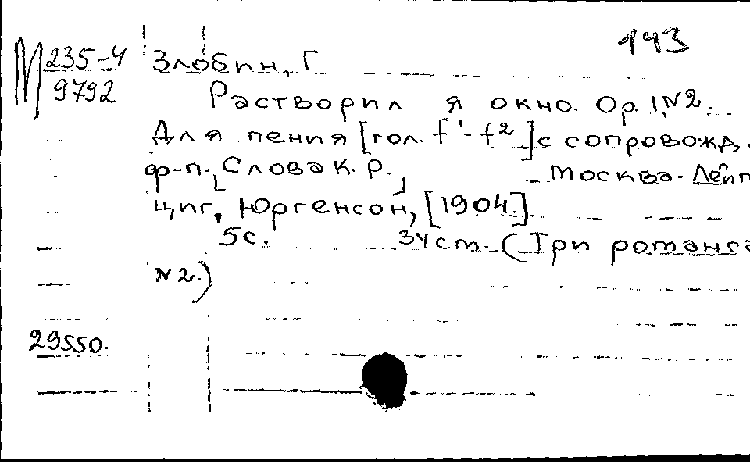 193
М 235-4 Злобин, Г
9792 Растворил я окно. Op. 1, №2.
Для пения [гол. f¹-f²] с сопровожд.
ф-п. Слова К. Р. Москва-Лейп
циг, Юргенсон, [1904.]
5с. 34cm. (Три романса
№2.)
29550.